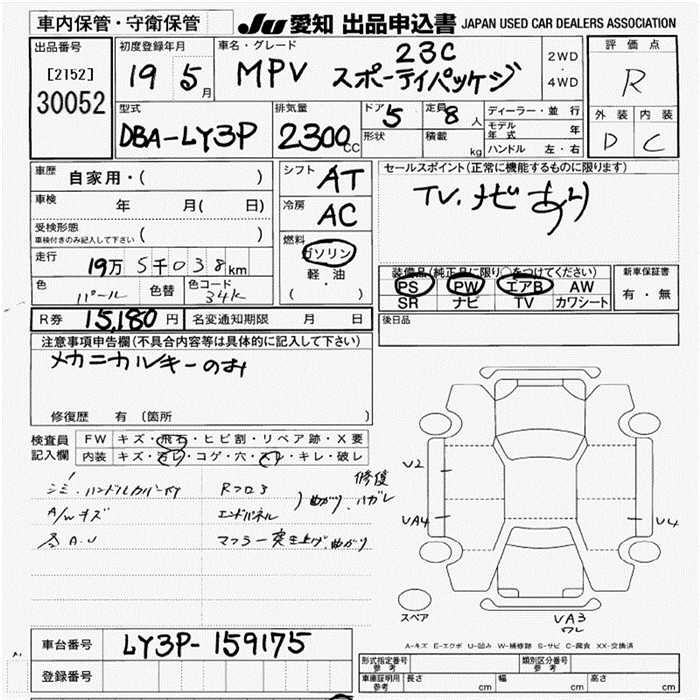 車内保管・守衛保管
JU 愛知 出品申込書 JAPAN USED CAR DEALERS ASSOCIATION
出品番号
[2152]
30052
初度登録年月
19 5月
車名・グレード
MPV 23C
スポーティパッケジ
2WD
・
4WD
評価点
R
外装 内装
D C
型式
DBA-LY3P
排気量
2300cc
ドア 5
形状
定員 8人
積載 kg
ディーラー・並行
モデル年式 年
ハンドル 左・右
車歴
自家用・( )
車検 年 月( 日)
受検形態
車検付きのみ記入して下さい ( )
走行
19万5千038km
色 パール 色替 色コード 34K
シフト AT
冷房 AC
燃料
ガソリン
軽・油
( )
セールスポイント(正常に機能するものに限ります)
TV.ナビあり
装備品(純正品に限り○をつけてください)
PS PW エアB AW
SR ナビ TV カワシート
新車保証書
有・無
R券 15,180円 名変通知期限 月 日
後日品
注意事項申告欄(不具合内容等は具体的に記入して下さい)
メカニカルキーのみ
修復歴 有 (箇所 )
検査員記入欄
FW キズ・飛石・ヒビ割・リペア跡・X要
内装 キズ・汚レ・コゲ・穴・スレ・キレ・破レ
シミ・ハンドルカバー付 Rフロア
A/Wキズ エンドパネル
曲がり、ハガレ 修復
各A.U マフラー突き上げ、曲がり
U2
UA4
U4
スペア
UA3
ワレ
A-キズ E-エクボ U-凹み W-補修跡 S-サビ C-腐食 XX-交換済
車台番号 LY3P-159175
登録番号
形式指定番号 参考
類別区分番号 参考
車庫証明用 参考 長さ cm 幅 cm 高さ cm